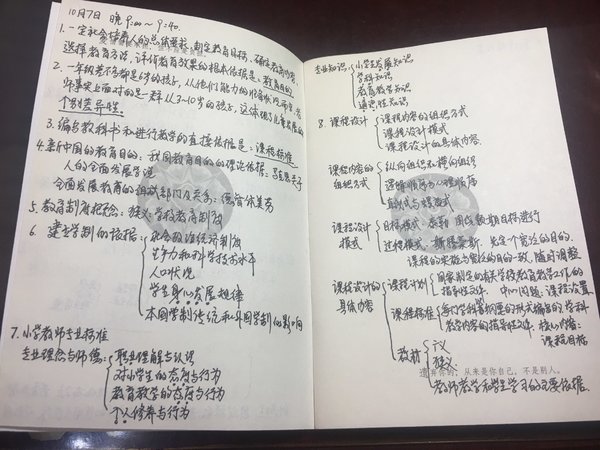 10月7日 晚 9:00~9:40.
1. 一定社会培养人的总体要求,制定教育目标、确定教育内容、
选择教育方法、评价教育效果的根本依据是:教育目的
2. 一年级差不多都是6岁的孩子,从他们能力的准备状况而言,老
师事实上面对的是一群从3~10岁的孩子,这体现了儿童发展的
个别差异性.
3. 编写教科书和进行教学的直接依据是:课程标准
4. 新中国的教育目的:我国教育目的的理论依据:马克思关于
人的全面发展学说
全面发展教育的组成部分及关系:德智体美劳
5. 教育制度概念:狭义:学校教育制度
6. 建立学制的依据:
社会政治经济制度
生产力和科学技术水平
人口状况
学生身心发展规律
本国学制传统和外国学制的影响
7. 小学教师专业标准
专业理念与师德:
职业理解与认识
对小学生的态度与行为
教育教学的态度与行为
个人修养与行为
专业知识:
小学生发展知识
学科知识
教育教学知识
通识性知识
8. 课程设计
课程内容的组织方式
课程设计模式
课程设计的具体内容
课程内容的组织方式
纵向组织和横向组织
逻辑顺序与心理顺序
直线式与螺旋式
课程设计模式
目标模式:泰勒 围绕预期目标进行
过程模式:斯腾豪斯. 先定个宽泛的目的.
课程的实施与宽泛的目的一致,随时调整
课程设计的具体内容
课程计划
国家制定的有关学校教育教学工作的
指导性文件. 中心问题:课程设置
课程标准
每门学科以纲要的形式编写的、学科
教学内容的指导性文件. 核心内容:
课程目标
教材
广义
狭义
从来是你自己,不是别人。
教师教学和学生学习的主要依据.